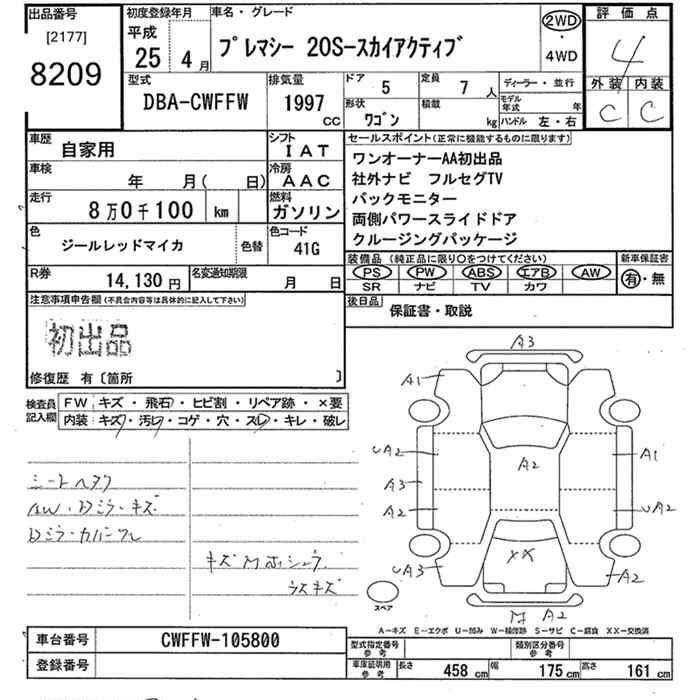 出品番号
[2177]
8209
初度登録年月
平成
25年 4月
車名・グレード
プレマシー 20S-スカイアクティブ
2WD
・
4WD
評価点
4
外装 内装
C C
型式
DBA-CWFFW
排気量
1997
CC
ドア 5
定員 7人
形状
ワゴン
積載
kg
ディーラー・並行
モデル年式 年
ハンドル 左・右
車歴
自家用
シフト
IAT
車検
年 月( 日)
冷房
AAC
走行
8万0千100 km
燃料
ガソリン
色
ジールレッドマイカ
色替
色コード
41G
R券
14,130円
名変通知期限
月 日
セールスポイント(正常に機能するものに限ります)
ワンオーナーAA初出品
社外ナビ フルセグTV
バックモニター
両側パワースライドドア
クルージングパッケージ
装備品(純正品に限り○をつけてください)
PS PW ABS エアB AW
SR ナビ TV カワ
新車保証書
有・無
後日品
保証書・取説
注意事項申告欄(不具合内容等は具体的に記入して下さい)
初出品
修復歴 有〔箇所 〕
検査員記入欄
FW キズ・飛石・ヒビ割・リペア跡・×要
内装 キズ・汚レ・コゲ・穴・スレ・キレ・破レ
シートヘタク
AW・Dミラーキズ
Dミラーカバーワレ
キズM ホシュウ
ウスキズ
A3
A1
UA2
A3
A2
UA3
A2
A1
UA2
XX
A2
A2
スペア
A-キズ E-エクボ U-凹み W-補修跡 S-サビ C-腐食 XX-交換済
車台番号
CWFFW-105800
登録番号
型式指定番号
参考
類別区分番号
参考
車庫証明用
参考
長さ 458 cm 幅 175 cm 高さ 161 cm